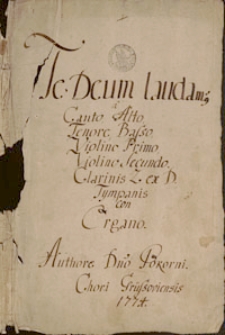 Te Deum laudam9
à
Canto Alto
Tenore Basso
Violino Primo
Violino Secundo.
Clarinis 2 ex D
Tympanis
con
Organo.
Authore Dno Pokorni.
Chori Grüssoviensis
1774.